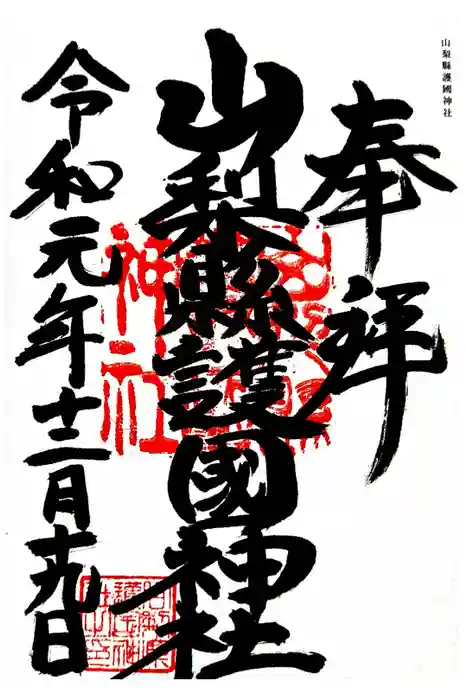 山梨縣護國神社
奉拝
山梨縣護國神社
令和元年十二月十九日